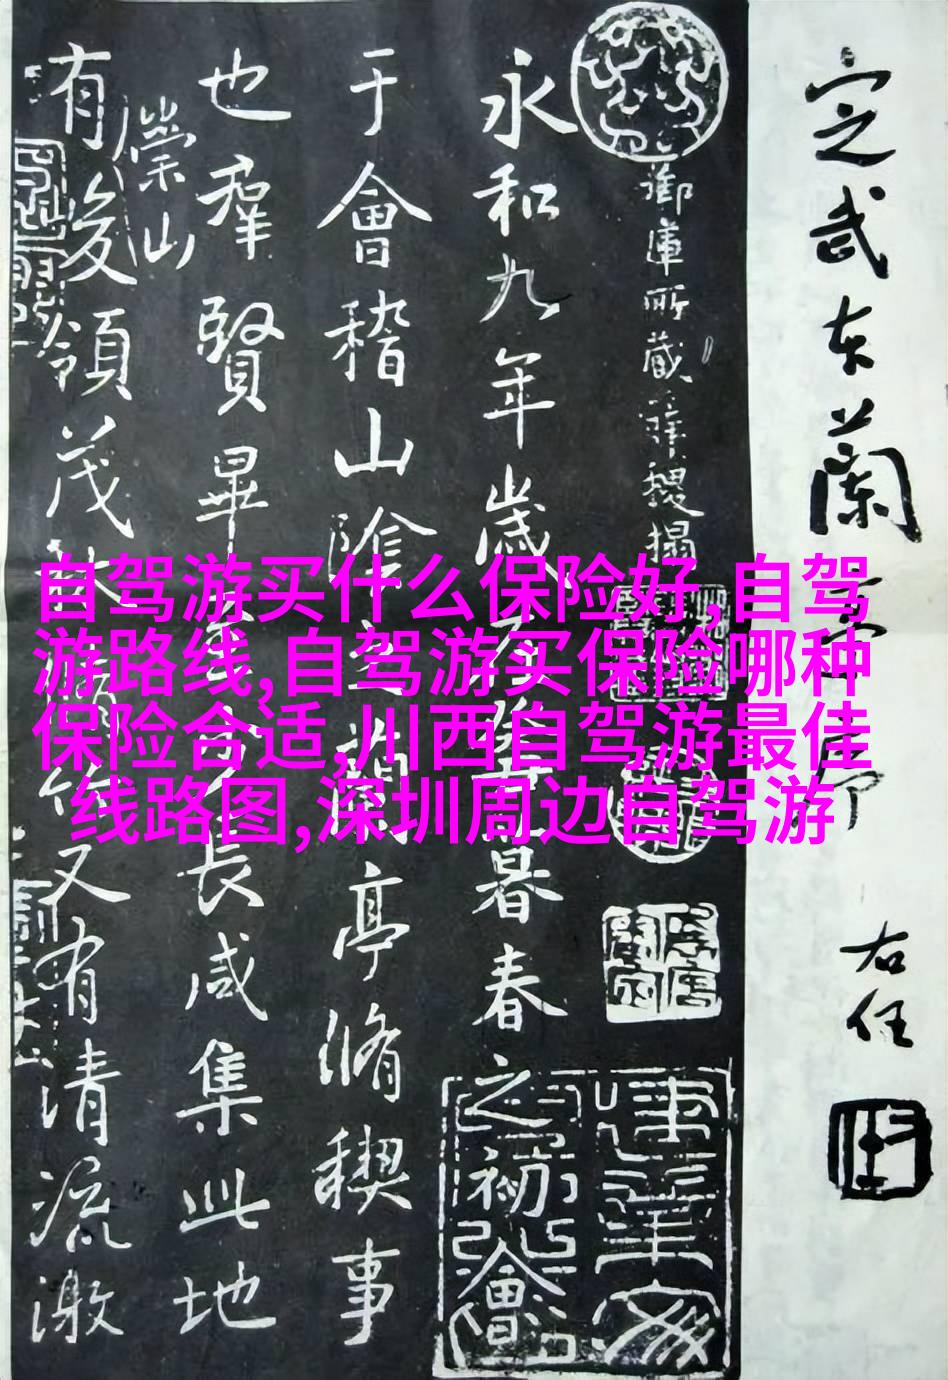 定武本蘭亭
右任
御庫所藏薛稷搨
永和九年歲在癸丑暮春之初會
于會稽山陰之蘭亭脩禊事
也羣賢畢至少長咸集此地
有崇山峻領茂林脩竹又有清流激
自驾游买什么保险好,自驾
游路线,自驾游买保险哪种
保险合适,川西自驾游最佳
线路图,深圳周边自驾游